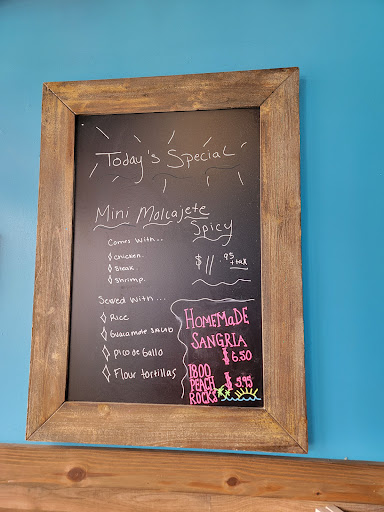 Today's Special
Mini Molcajete
Spicy
Comes With...
Chicken.
Steak.
Shrimp.
$11.95
+tax
Served With...
Rice
Guacamole SALAD
Pico de Gallo
Flour tortillas
HOMEMaDE
SANGRIA
$6.50
1800
PEACH
ROCKS
$5.95